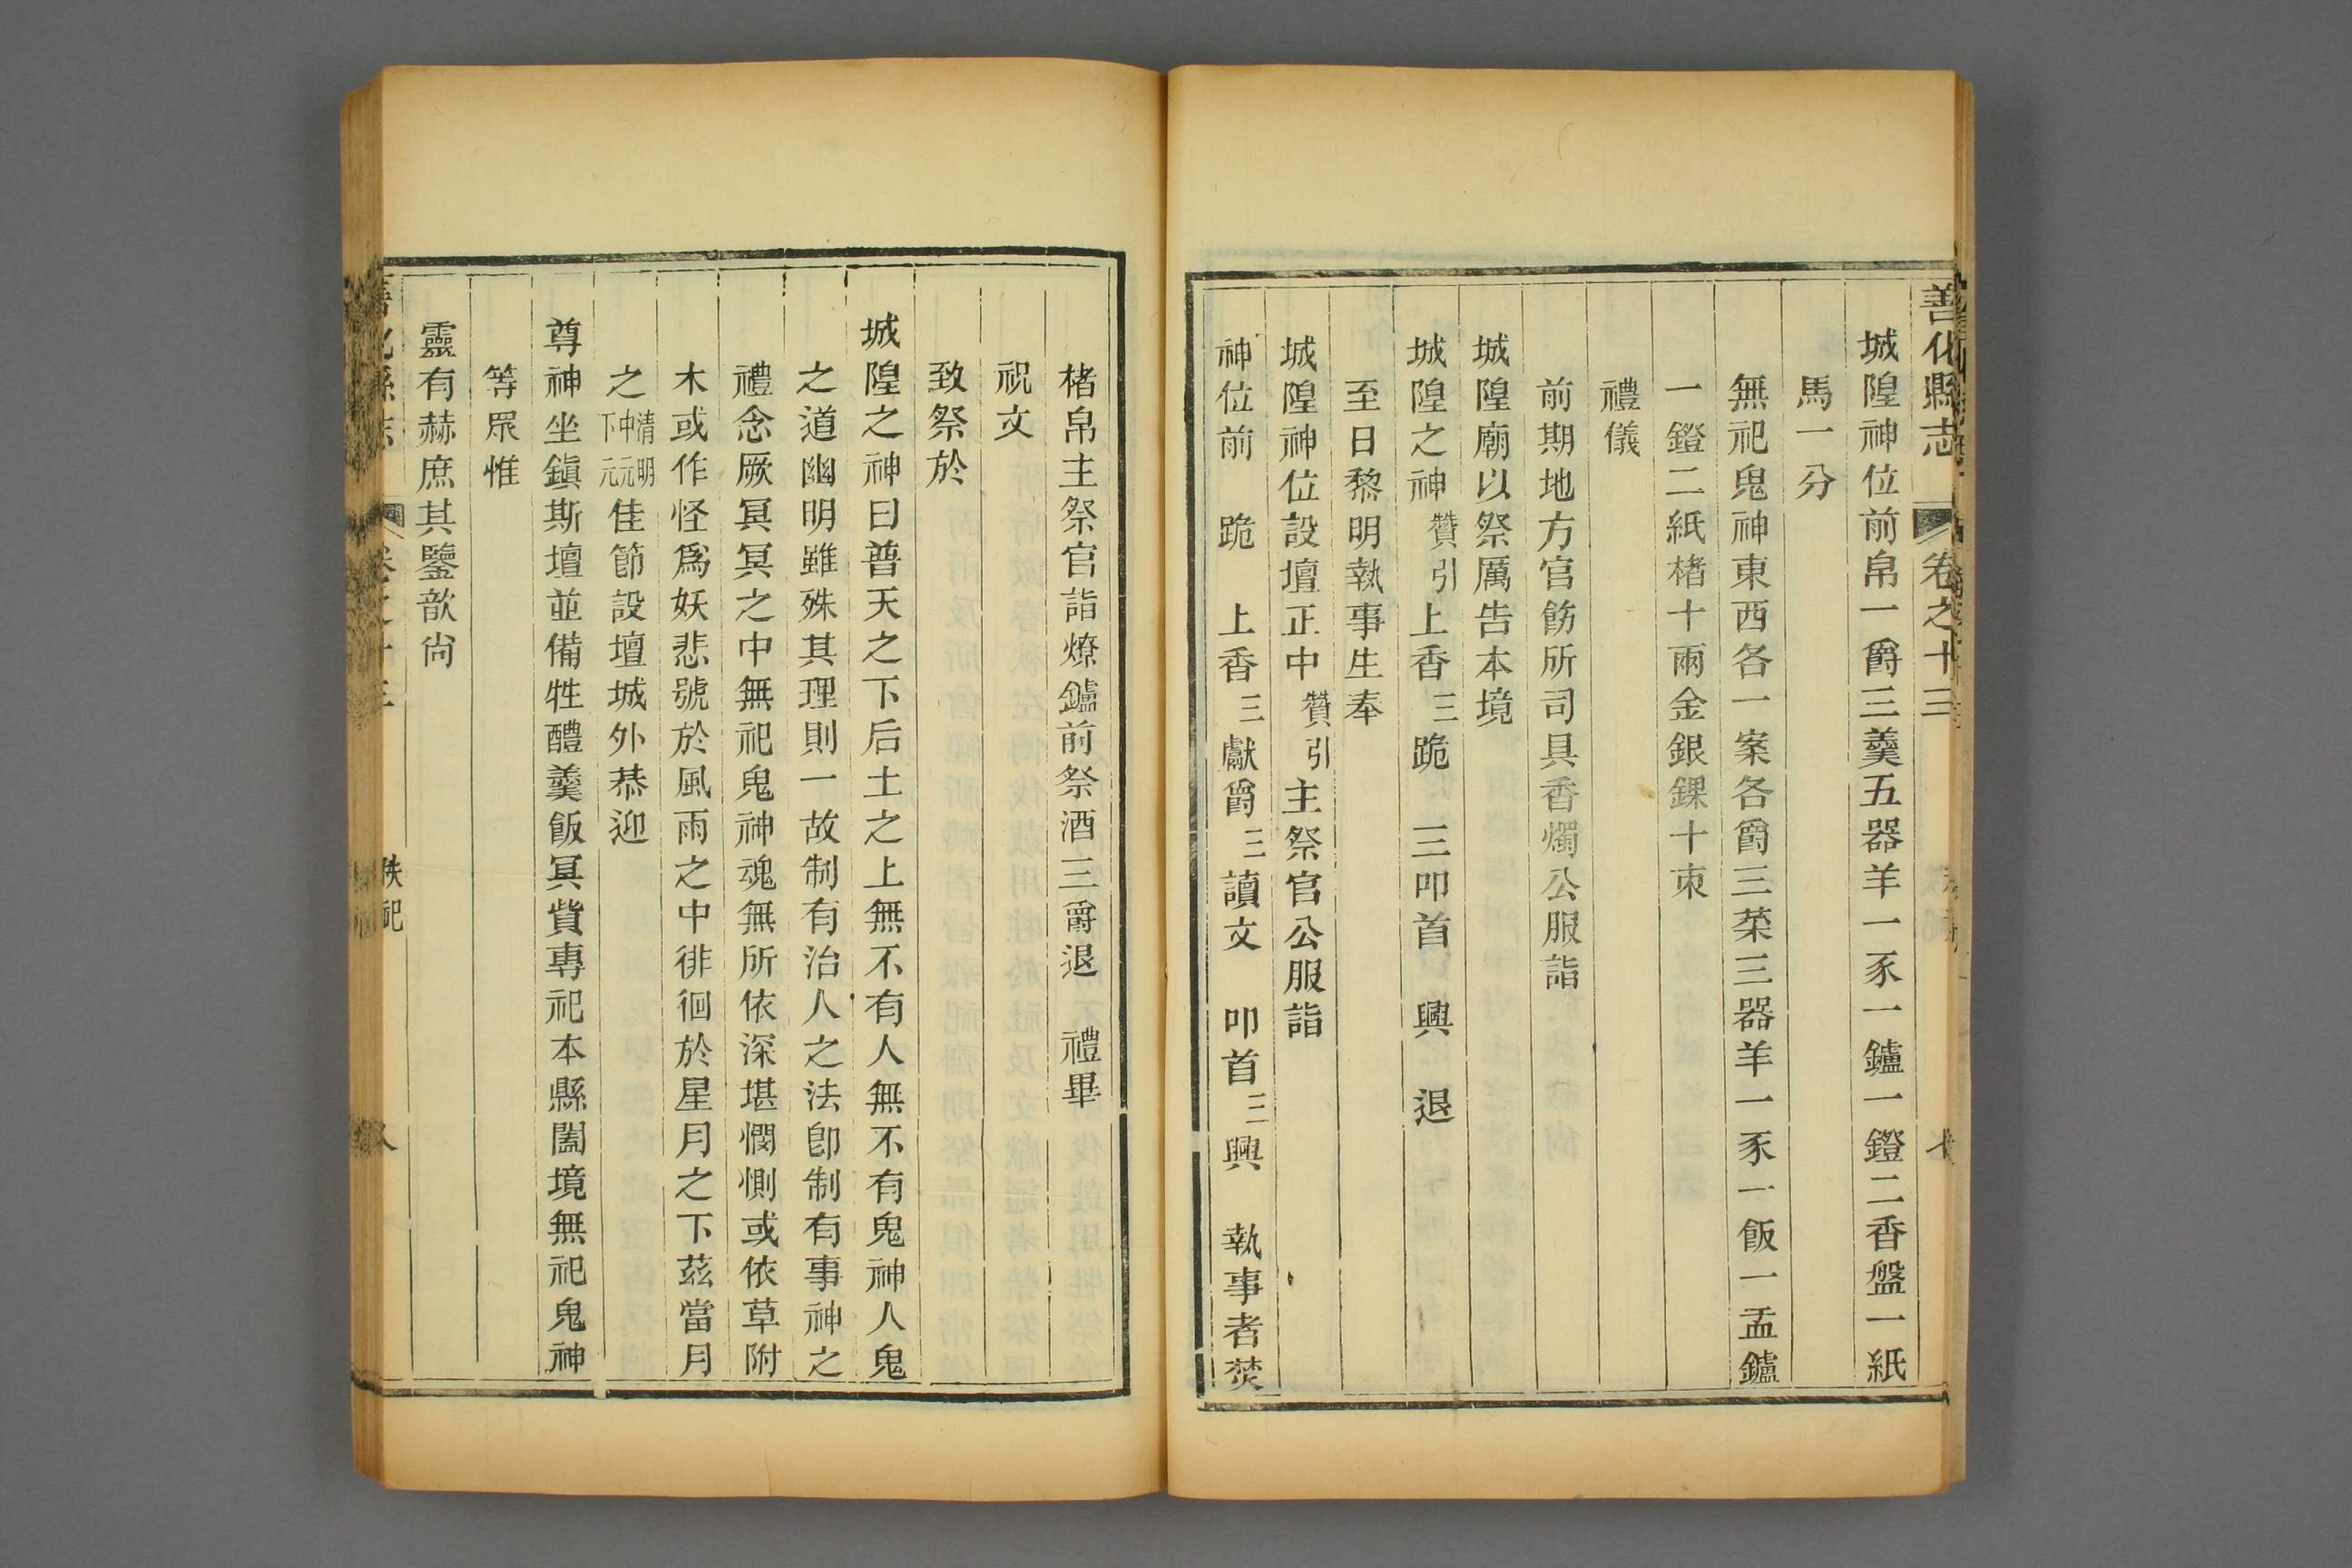 善化縣志 卷之十三
城隍神位前帛一爵三羹五器羊一豕一鑪一鐙二香盤一紙
馬一分
無祀鬼神東西各一案各爵三菜三器羊一豕一飯一盂鑪
一鐙二紙楮十兩金銀錁十束
禮儀
前期地方官飭所司具香燭公服詣
城隍廟以祭厲告本境
城隍之神贊引上香三跪 三叩首 興 退
至日黎明執事生奉
城隍神位設壇正中贊引主祭官公服詣
神位前 跪 上香三獻爵三讀文 叩首三興 執事者焚
楮帛主祭官詣燎鑪前祭酒三爵退 禮畢
祝文
致祭於
城隍之神曰普天之下后土之上無不有人無不有鬼神人鬼
之道幽明雖殊其理則一故制有治人之法卽制有事神之
禮念厥冥冥之中無祀鬼神魂無所依深堪憫惻或依草附
木或作怪爲妖悲號於風雨之中徘徊於星月之下茲當月
之清明中元下元佳節設壇城外恭迎
尊神坐鎭斯壇並備牲醴羹飯冥貲專祀本縣闔境無祀鬼神
等眾惟
靈有赫庶其鑒歆尙
秩祀 八